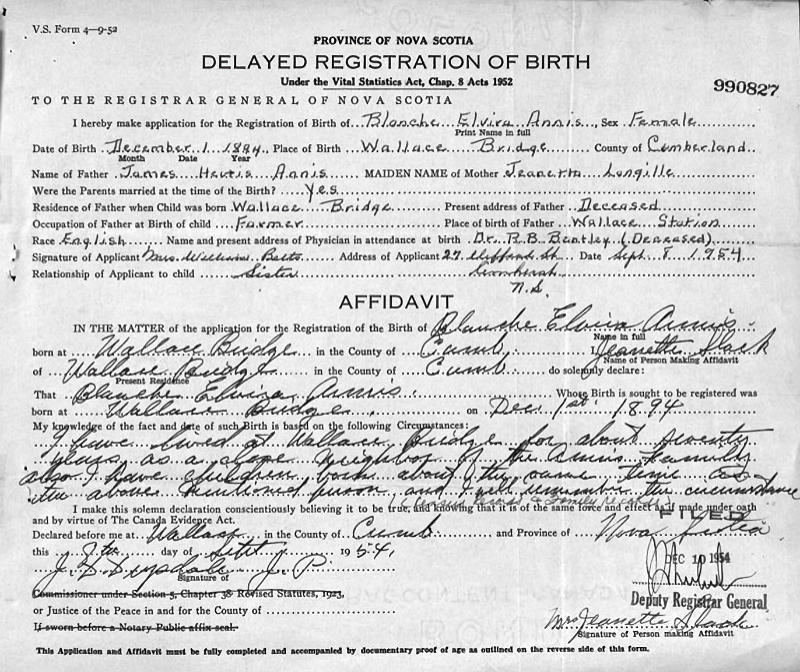 V.S. Form 4—9-52
PROVINCE OF NOVA SCOTIA
DELAYED REGISTRATION OF BIRTH
Under the Vital Statistics Act, Chap. 8 Acts 1952
990827
TO THE REGISTRAR GENERAL OF NOVA SCOTIA
I hereby make application for the Registration of Birth of Blanche Elvira Annis, Sex Female
Print Name in full
Date of Birth December 1 1894 Place of Birth Wallace Bridge County of Cumberland
Month Date Year
Name of Father James Annis MAIDEN NAME of Mother Jeanetta Langille
Were the Parents married at the time of the Birth? Yes
Residence of Father when Child was born Wallace Bridge Present address of Father Deceased
Occupation of Father at Birth of child Farmer Place of birth of Father Wallace Station
Race English Name and present address of Physician in attendance at birth Dr. R.B. Bentley (Deceased)
Signature of Applicant Mrs. William Betts Address of Applicant 27 St Date Sept. 8 1954
Relationship of Applicant to child Sister Amherst
N.S.
AFFIDAVIT
IN THE MATTER of the application for the Registration of the Birth of Blanche Elvira Annis
Name in full
born at Wallace Bridge in the County of Cumb. Jeanette Slack
Name of Person Making Affidavit
of Wallace Bridge in the County of Cumb. do solemnly declare:
Present Residence
That Blanche Elvira Annis Whose Birth is sought to be registered was
born at Wallace Bridge on Dec. 1st. 1894
My knowledge of the fact and date of such Birth is based on the following Circumstances:
I have lived at Wallace Bridge for about seventy
years as a close neighbor of the Annis family
also I have children born about the same time as
the above mentioned person, and I well remember the circumstance
I make this solemn declaration conscientiously believing it to be true, and knowing that it is of the same force and effect as if made under oath
and by virtue of The Canada Evidence Act.
FILED
Declared before me at Wallace in the County of Cumb and Province of Nova Scotia
this 8th day of Sept. 1954
DEC 10 1954
J. P.
Signature of
Commissioner under Section 5, Chapter 38 Revised Statutes, 1923,
Deputy Registrar General
or Justice of the Peace in and for the County of
Mrs Jeanette Slack
If sworn before a Notary Public affix seal.
Signature of Person making Affidavit
This Application and Affidavit must be fully completed and accompanied by documentary proof of age as outlined on the reverse side of this form.